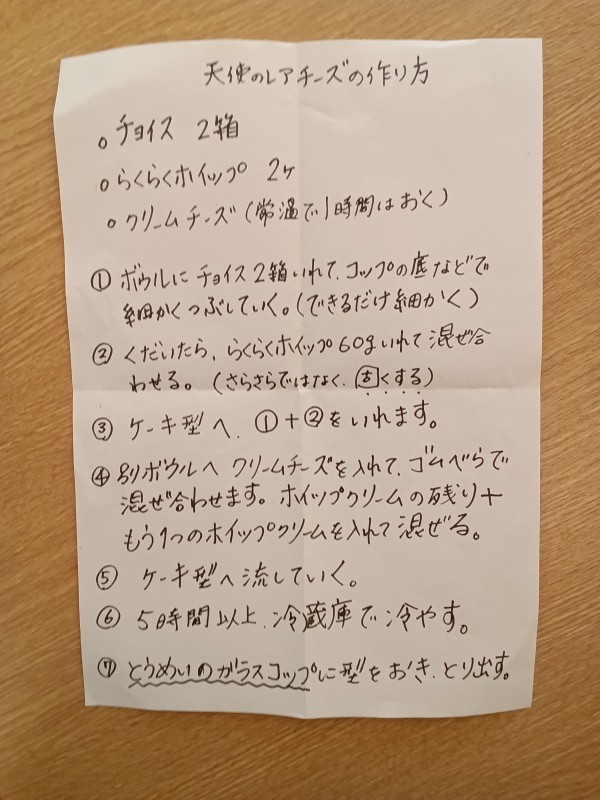 天使のレアチーズの作り方
○チョイス 2箱
○らくらくホイップ 2ケ
○クリームチーズ(常温で1時間はおく)
① ボウルにチョイス2箱いれて、コップの底などで
細かくつぶしていく。(できるだけ細かく)
② くだいたら、らくらくホイップ60gいれて混ぜ合
わせる。(さらさらではなく、固くする)
③ ケーキ型へ、①+②をいれます。
④ 別ボウルへクリームチーズを入れて、ゴムべらで
混ぜ合わせます。ホイップクリームの残り+
もう1つのホイップクリームを入れて混ぜる。
⑤ ケーキ型へ流していく。
⑥ 5時間以上、冷蔵庫で冷やす。
⑦ とうめいのガラスコップに型をおき、とり出す。